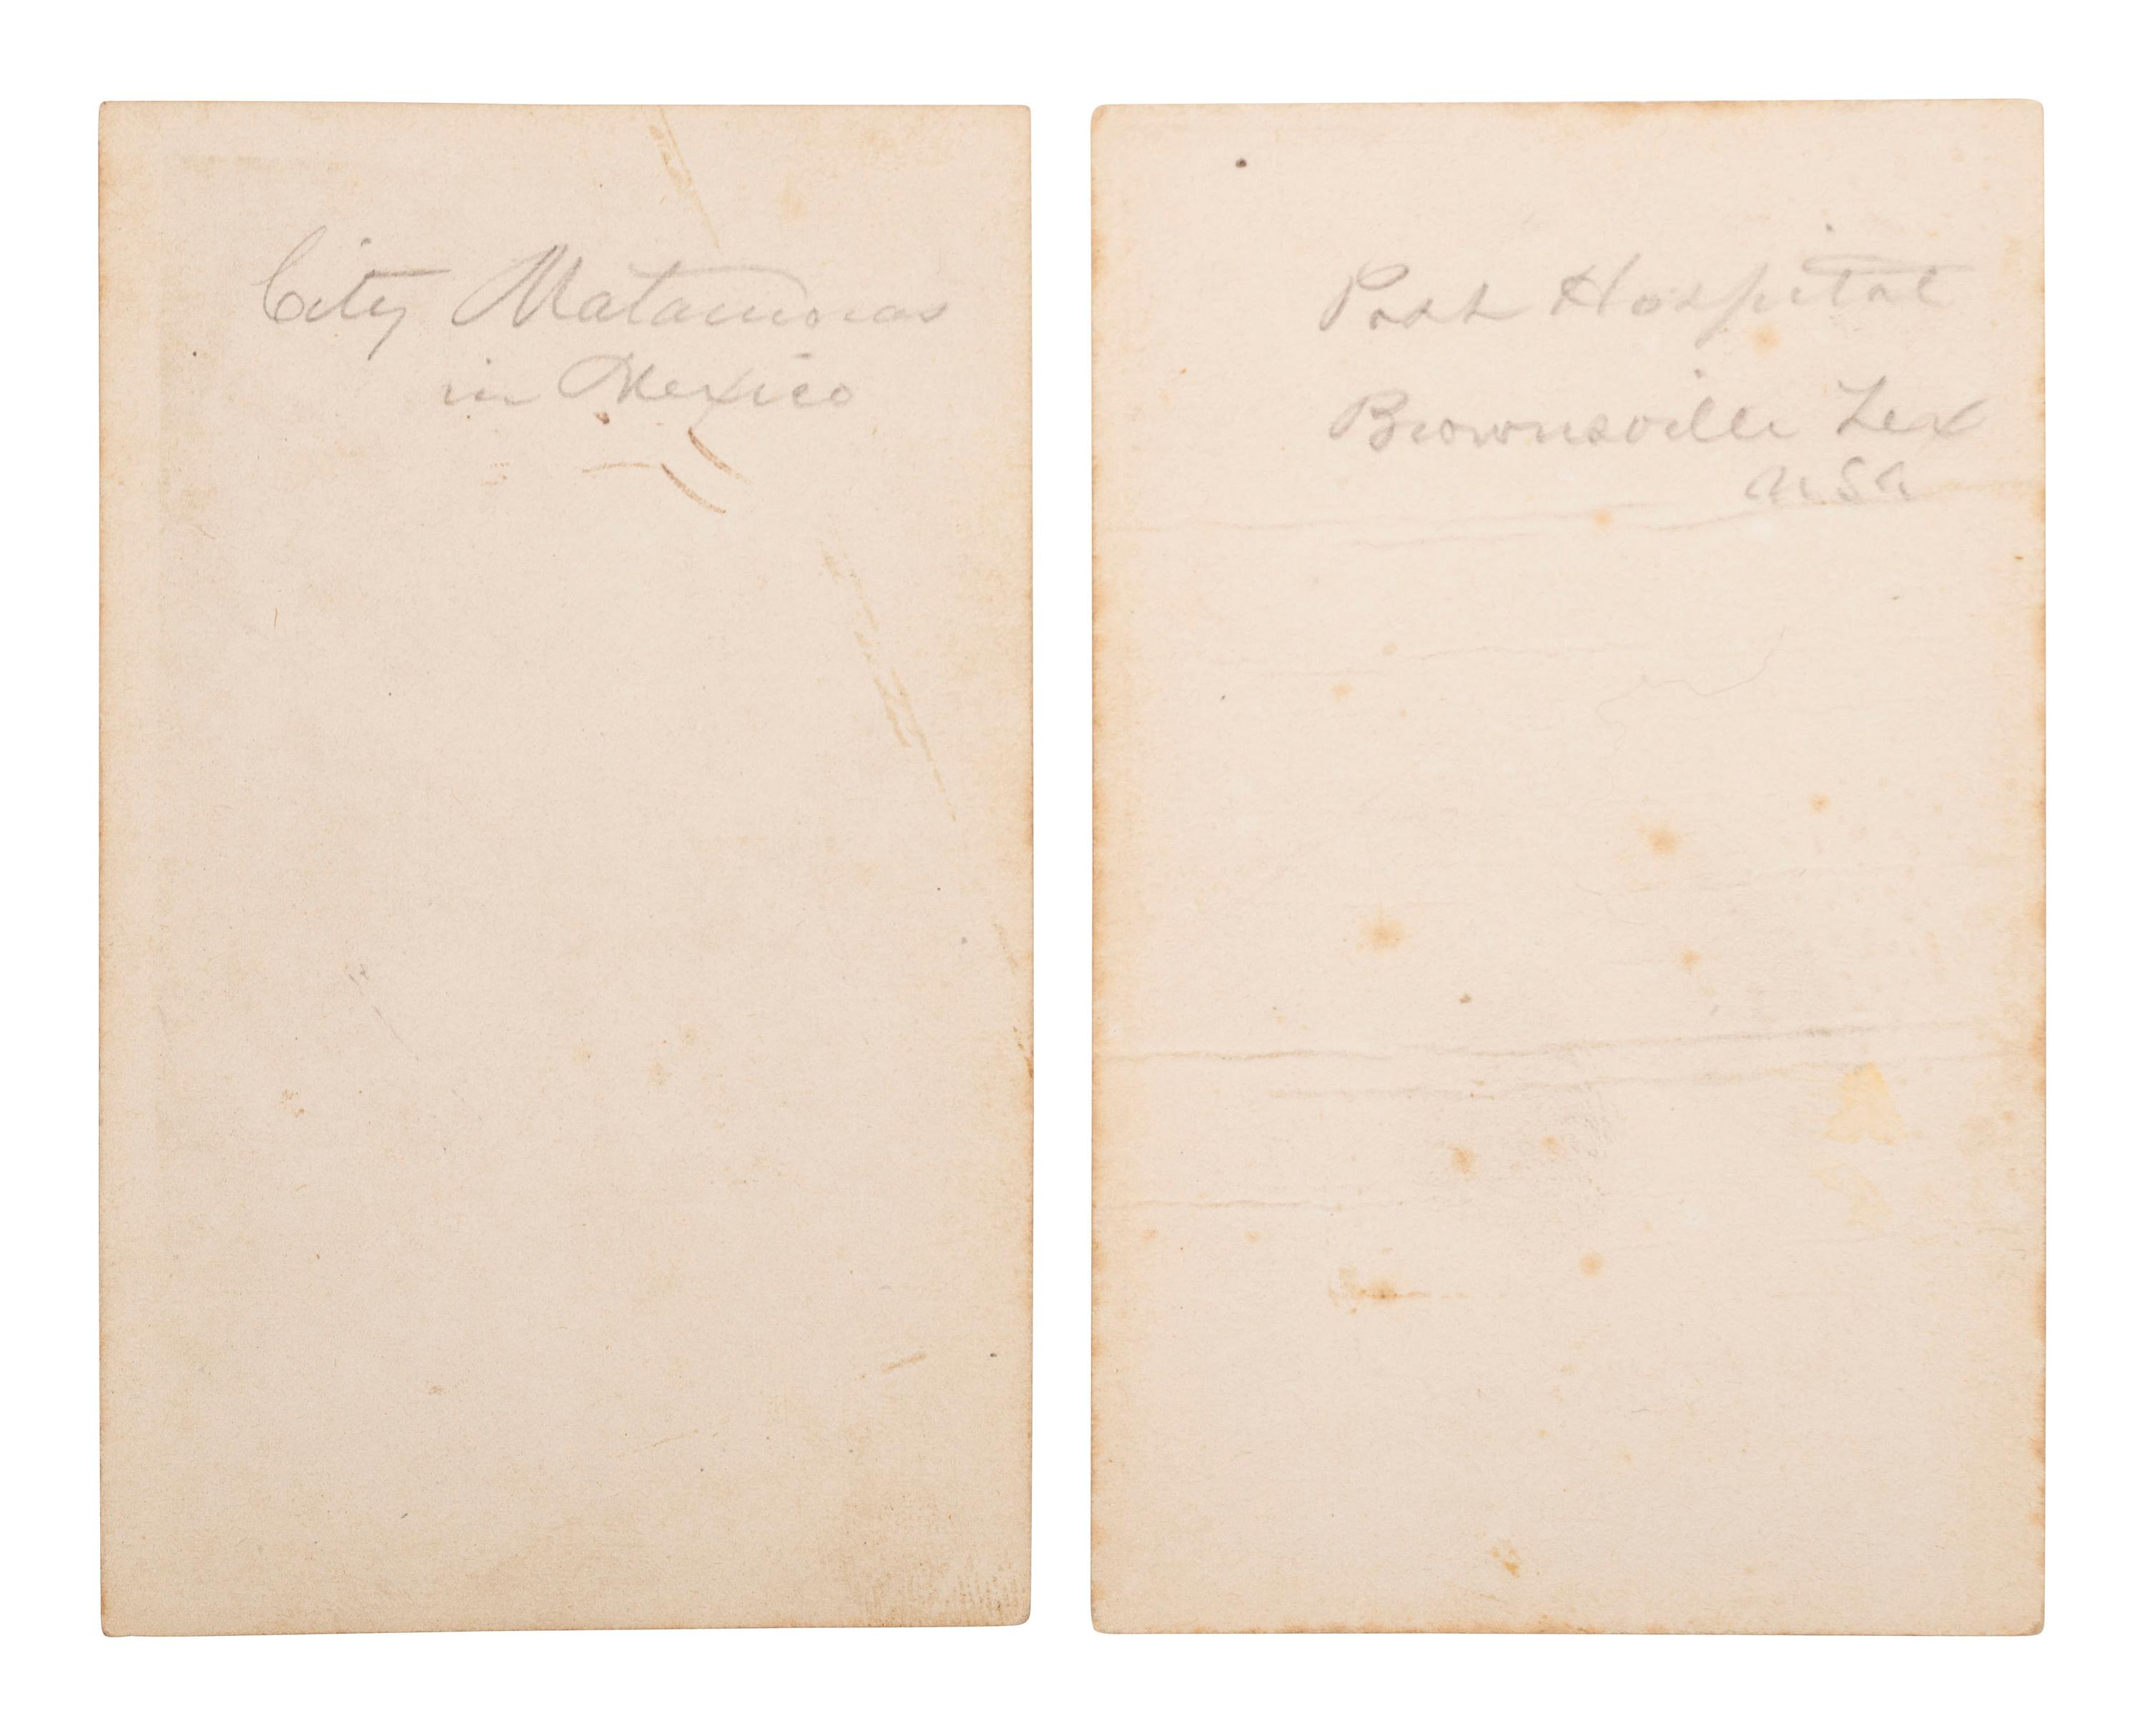 City Matamoras
in Mexico
Post Hospital
Brownsville Tex
USA